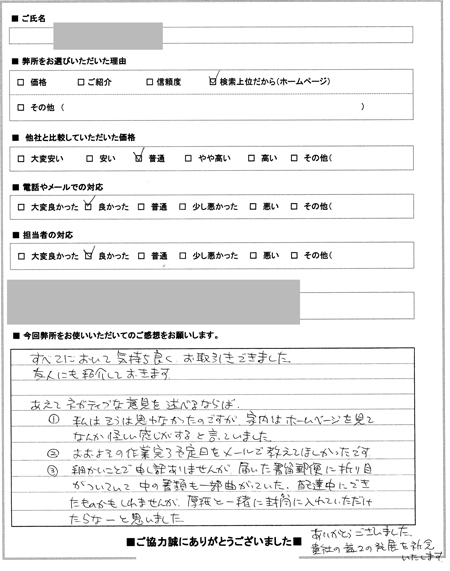 ■ ご氏名
■ 弊所をお選びいただいた理由
□ 価格 □ ご紹介 □ 信頼度 ☑ 検索上位だから(ホームページ)
□ その他 ( )
■ 他社と比較していただいた価格
□ 大変安い □ 安い ☑ 普通 □ やや高い □ 高い □ その他(
■ 電話やメールでの対応
□ 大変良かった ☑ 良かった □ 普通 □ 少し悪かった □ 悪い □ その他(
■ 担当者の対応
□ 大変良かった ☑ 良かった □ 普通 □ 少し悪かった □ 悪い □ その他(
■ 今回弊所をお使いいただいてのご感想をお願いします。
すべてにおいて気持ち良く お取引きできました。
友人にも紹介しておきます。
あえてネガティブな意見を述べるならば、
① 私はそうは思わなかったのですが、家内はホームページを見て
なんか怪しい感じがすると言っていました。
② おおよその作業完了予定日をメールで教えてほしかったです
③ 細かいことで申し訳ありませんが、届いた書留郵便に折り目
がついていて中の書類も一部曲がっていた。配達中にでき
たものかもしれませんが、厚紙と一緒に封筒に入れていただけ
たらなーと思いました
ありがとうございました。
貴社の益々の発展を祈念
いたします
■ご協力誠にありがとうございました■